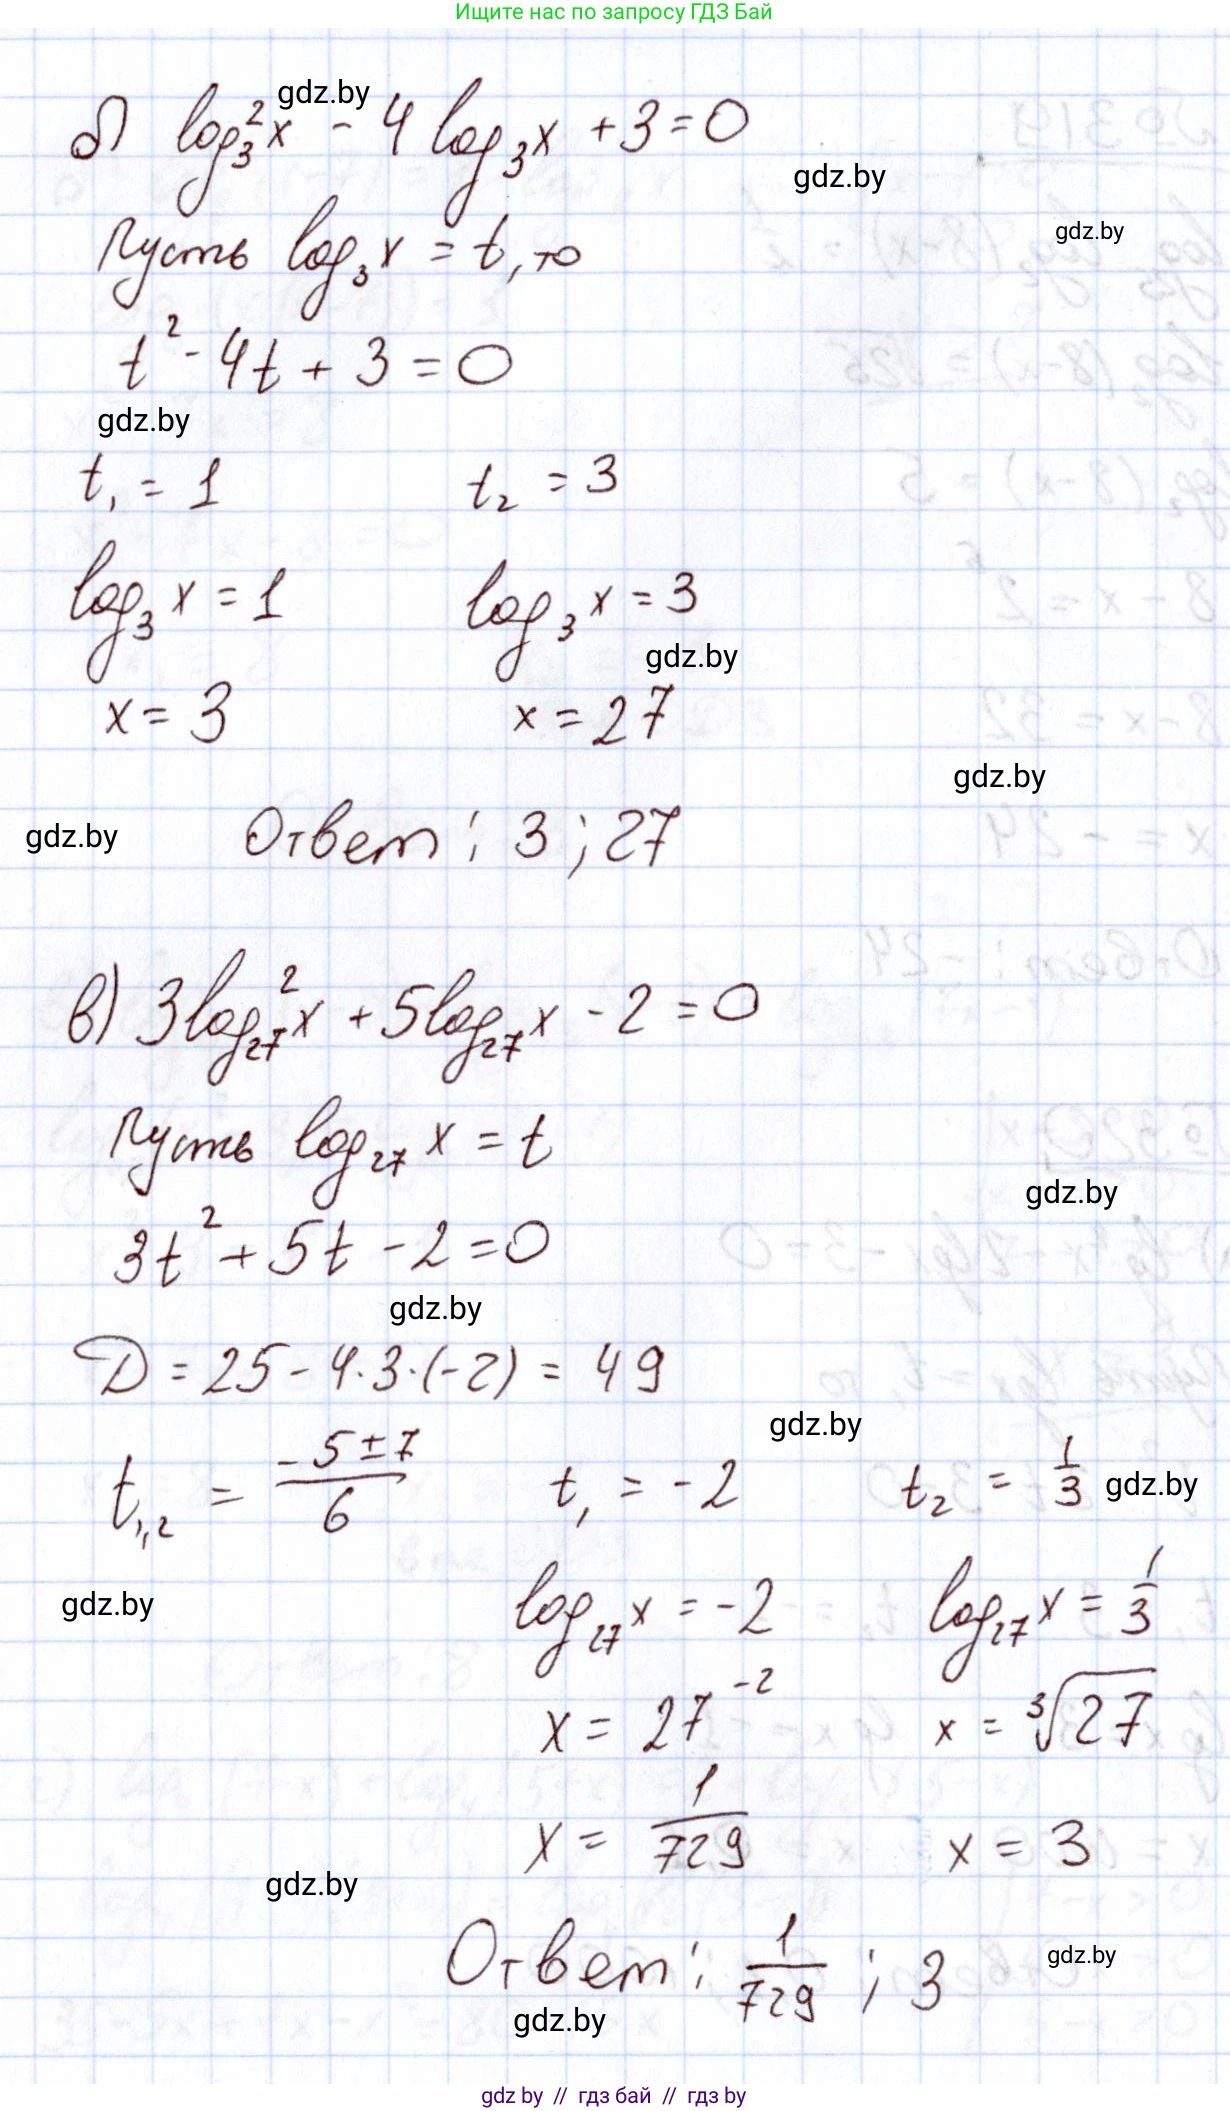 Ищите нас по запросу ГДЗ Бай
gdz.by
б) log₃²x - 4 log₃x + 3 = 0
gdz.by
gdz.by
Пусть log₃x = t, то
t² - 4t + 3 = 0
gdz.by
t₁ = 1 t₂ = 3
log₃x = 1 log₃x = 3
gdz.by
x = 3 x = 27
gdz.by
gdz.by
Ответ: 3; 27
в) 3log₂₇²x + 5log₂₇x - 2 = 0
Пусть log₂₇x = t
gdz.by
3t² + 5t - 2 = 0
gdz.by
D = 25 - 4·3·(-2) = 49
gdz.by
t₁,₂ = (-5±7)/6 t₁ = -2 t₂ = 1/3
gdz.by
gdz.by
log₂₇x = -2 log₂₇x = 1/3
x = 27⁻² x = ³√27
x = 1/729 x = 3
gdz.by
Ответ: 1/729; 3
gdz.by
gdz.by
gdz by // гдз бай // гдз by